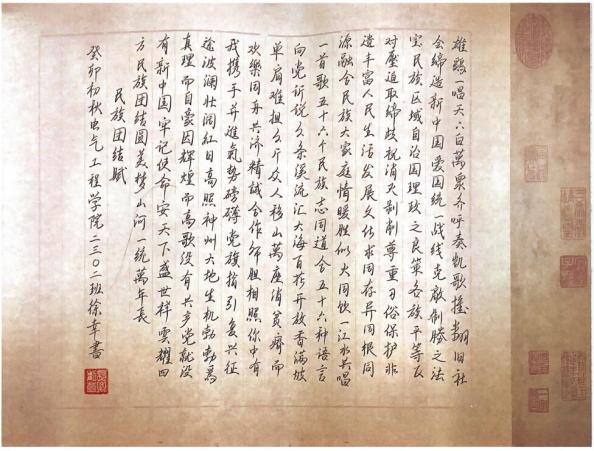 雄鷄一唱天下白萬衆齊呼奏凱歌推翻旧社
会缔造新中国爱国统一战线克敵制勝之法
宝民族区域自治国理政之良策各族平等反
对壓迫取缔歧视消灭剥削尊重习俗保护非
遗丰富人民生活发展文化求同存异同根同
源融合民族大家庭情暖胜似火同饮一江水共唱
一首歌五十六个民族志同道合五十六种语言
向党诉说久条溪流汇大海百花开放香满坡
单肩难担久斤众人移山萬座消贫瘠而
欢樂同舟共济精誠合作肝胆相照你中有
我携手并進氣勢磅礴党旗指引复兴征
途波澜壮阔红日高照神州大地生机勃勃爲
真理而自豪因辉煌而高歌没有共产党就没
有新中国牢记使命安天下盛世祥雲耀四
方民族团结圆美梦山河一统萬年長
民族团结赋
癸卯初秋电气工程学院二三〇二班徐幸書